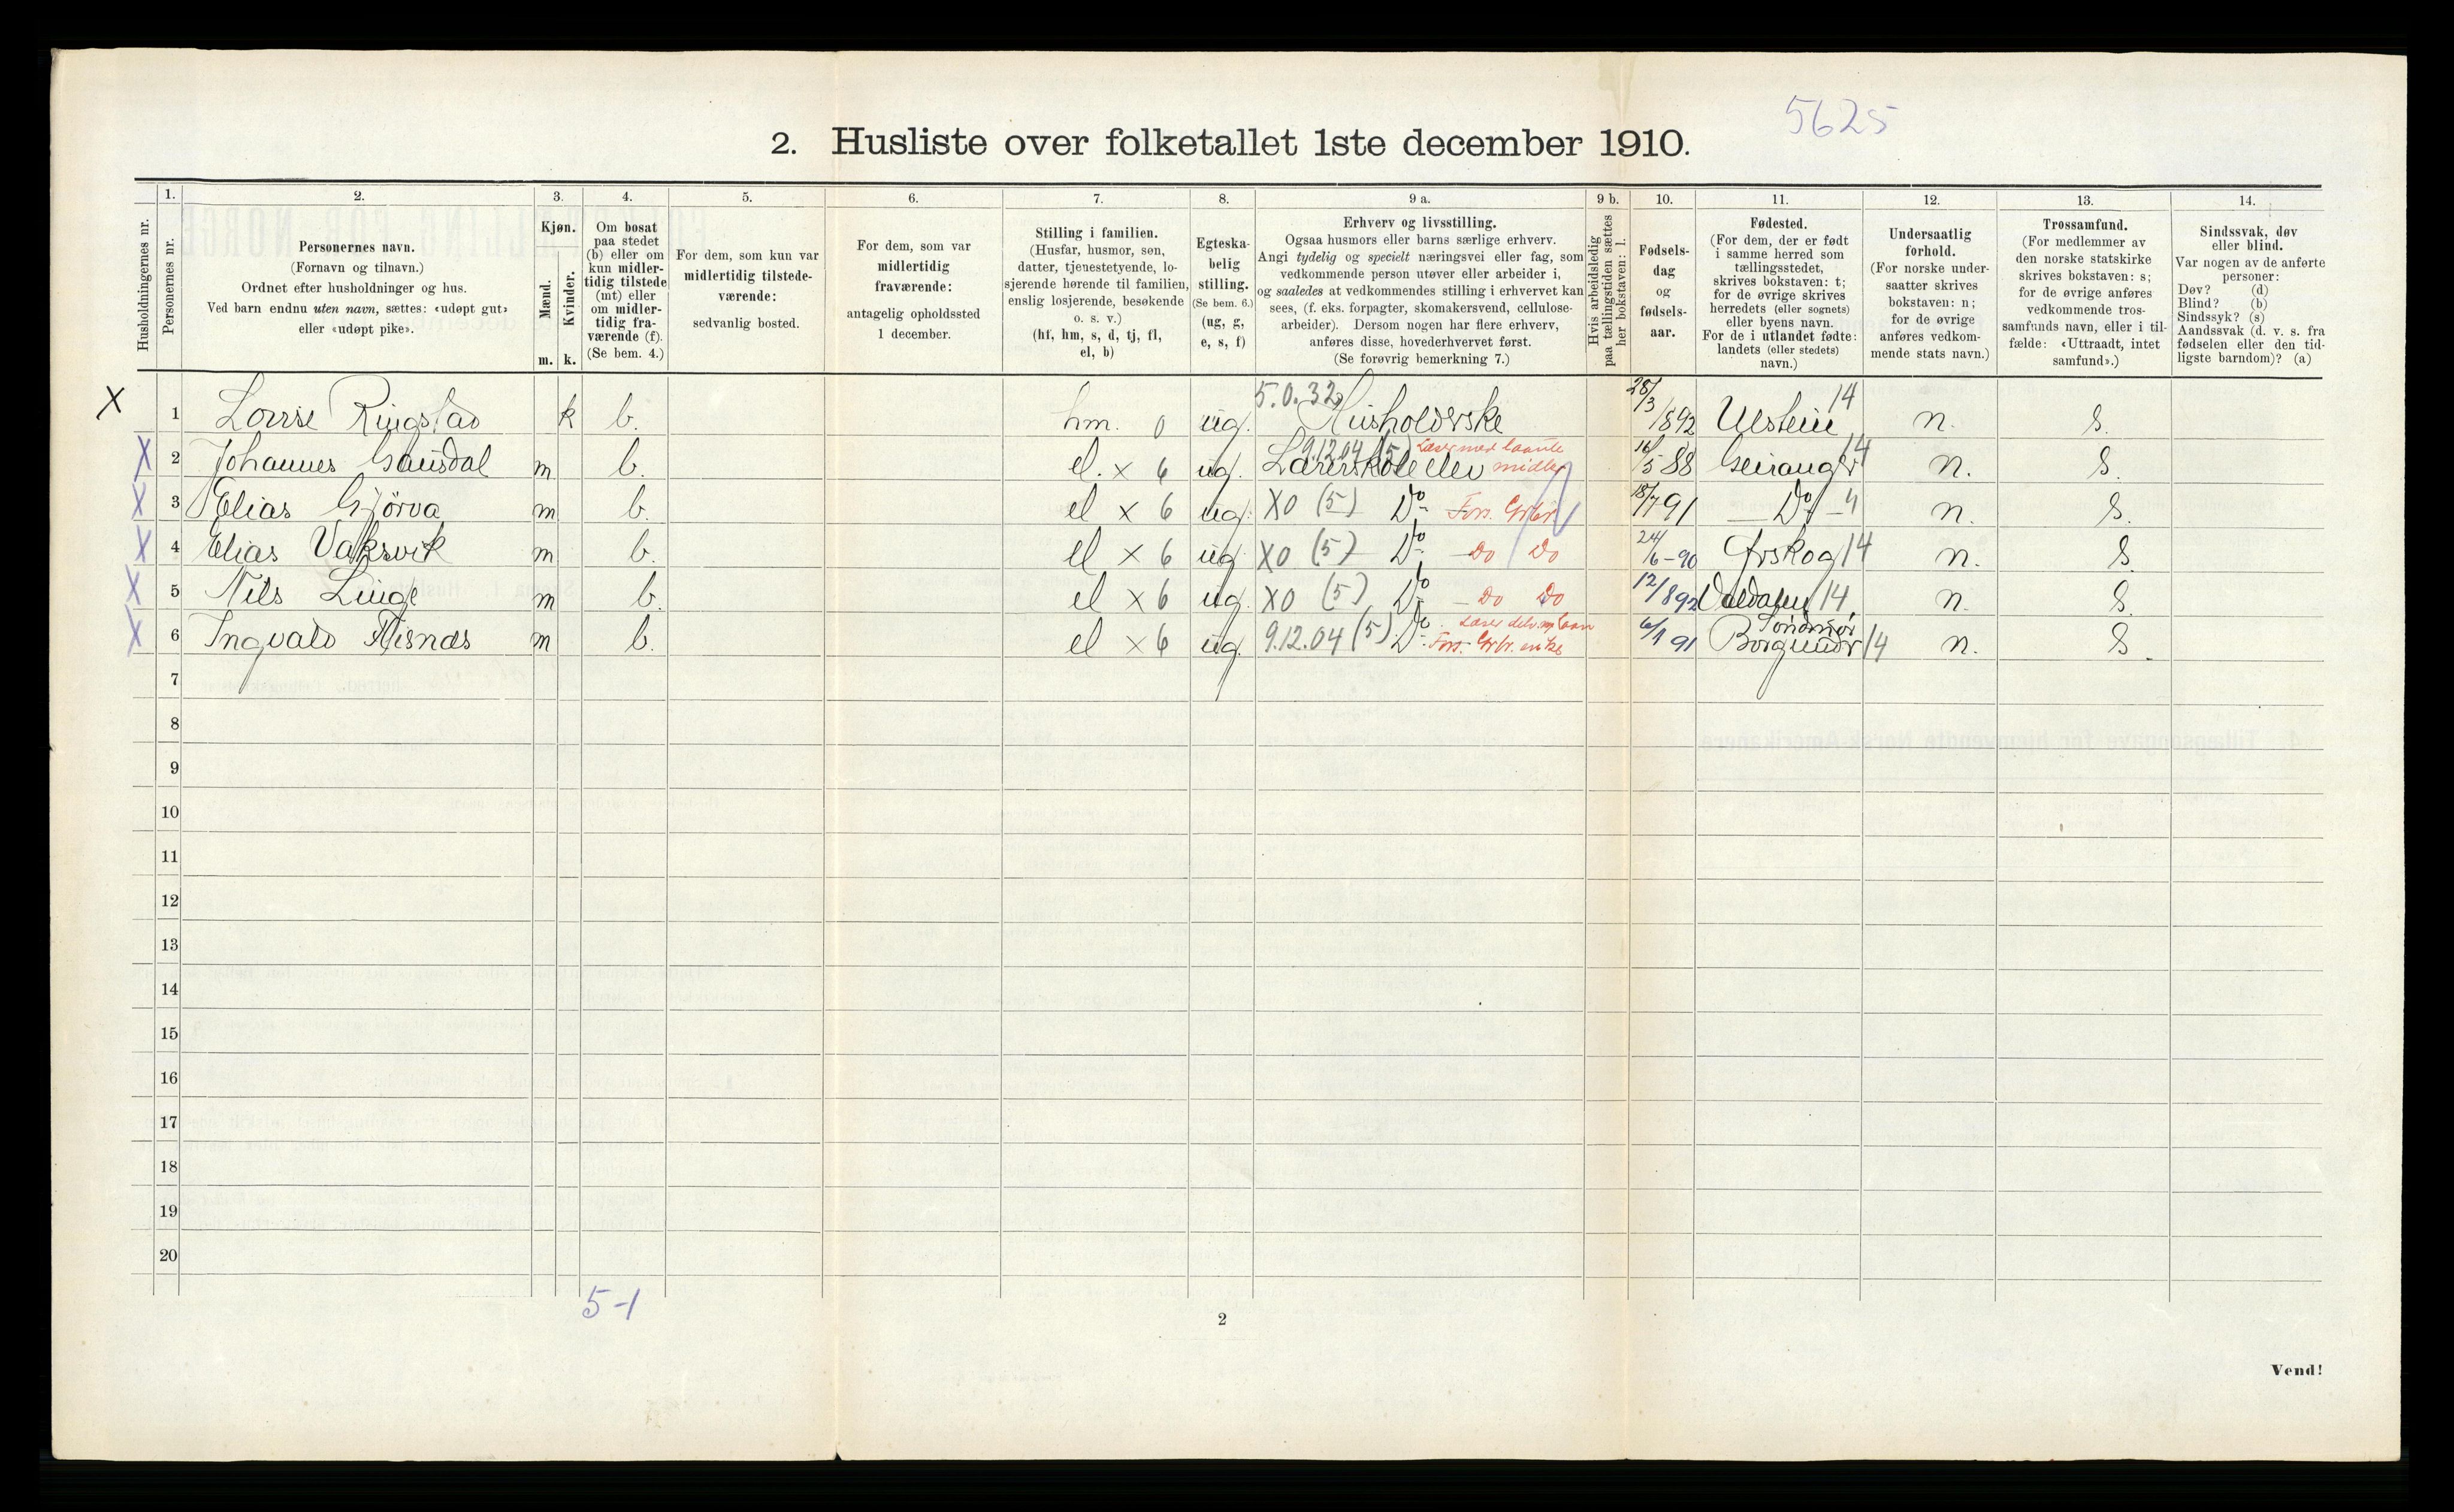 5625
2. Husliste over folketallet 1ste december 1910.
Husholdningernes nr.
1.
Personernes nr.
2.
Personernes navn.
(Fornavn og tilnavn.)
Ordnet efter husholdninger og hus.
Ved barn endnu uten navn, sættes: «udøpt gut»
eller «udøpt pike».
3.
Kjøn.
Mænd.
Kvinder.
m. k.
4.
Om bosat
paa stedet
(b) eller om
kun midler-
tidig tilstede
(mt) eller
om midler-
tidig fra-
værende (f).
(Se bem. 4.)
5.
For dem, som kun var
midlertidig tilstede-
værende:
sedvanlig bosted.
6.
For dem, som var
midlertidig
fraværende:
antagelig opholdssted
1 december.
7.
Stilling i familien.
(Husfar, husmor, søn,
datter, tjenestetyende, lo-
sjerende hørende til familien,
enslig losjerende, besøkende
o. s. v.)
(hf, hm, s, d, tj, fl,
el, b)
8.
Egteska-
belig
stilling.
(Se bem. 6.)
(ug, g,
e, s, f)
9 a.
Erhverv og livsstilling.
Ogsaa husmors eller barns særlige erhverv.
Angi tydelig og specielt næringsvei eller fag, som
vedkommende person utøver eller arbeider i,
og saaledes at vedkommendes stilling i erhvervet kan
sees, (f. eks. forpagter, skomakersvend, cellulose-
arbeider). Dersom nogen har flere erhverv,
anføres disse, hovederhvervet først.
(Se forøvrig bemerkning 7.)
9 b.
Hvis arbeidsledig
paa tællingstiden sættes
her bokstaven: l.
10.
Fødsels-
dag
og
fødsels-
aar.
11.
Fødested.
(For dem, der er født
i samme herred som
tællingsstedet,
skrives bokstaven: t;
for de øvrige skrives
herredets (eller sognets)
eller byens navn.
For de i utlandet fødte:
landets (eller stedets)
navn.)
12.
Undersaatlig
forhold.
(For norske under-
saatter skrives
bokstaven: n;
for de øvrige
anføres vedkom-
mende stats navn.)
13.
Trossamfund.
(For medlemmer av
den norske statskirke
skrives bokstaven: s;
for de øvrige anføres
vedkommende tros-
samfunds navn, eller i til-
fælde: «Uttraadt, intet
samfund».)
14.
Sindssvak, døv
eller blind.
Var nogen av de anførte
personer:
Døv? (d)
Blind? (b)
Sindssyk? (s)
Aandssvak (d. v. s. fra
fødselen eller den tid-
ligste barndom)? (a)
X 1 Lovise Ringstad k b. hm. 0 ug. 5.0.32 Husholderske 28/3 1892 Ulstein 14 n. S.
X 2 Johannes Gausdal m b. el. x 6 ug. 9.12.04 (5) Lærerskoleelev Læser med laante midler 16/5 88 Geiranger 14 n. S.
X 3 Elias Gjörva m b. el x 6 ug. XO (5) Do Fors. Grbr. 18/7 91 Do 14 n. S.
X 4 Elias Vaksvik m b. el x 6 ug XO (5) Do Do Do 24/6-90 Ørskog 14 n. S.
X 5 Nils Linge m b. el x 6 ug. XO (5) Do Do Do 12/8 92 Valdalen 14 n. S.
X 6 Ingvald Flisnæs m b. el x 6 ug. 9.12.04 (5) Do Læser delv. m laan Fors. Grbr. enke 6/1 91 Borgund Søndmør 14 n. S.
7
8
9
10
11
12
13
14
15
16
17
18
19
20
5-1
2
Vend!